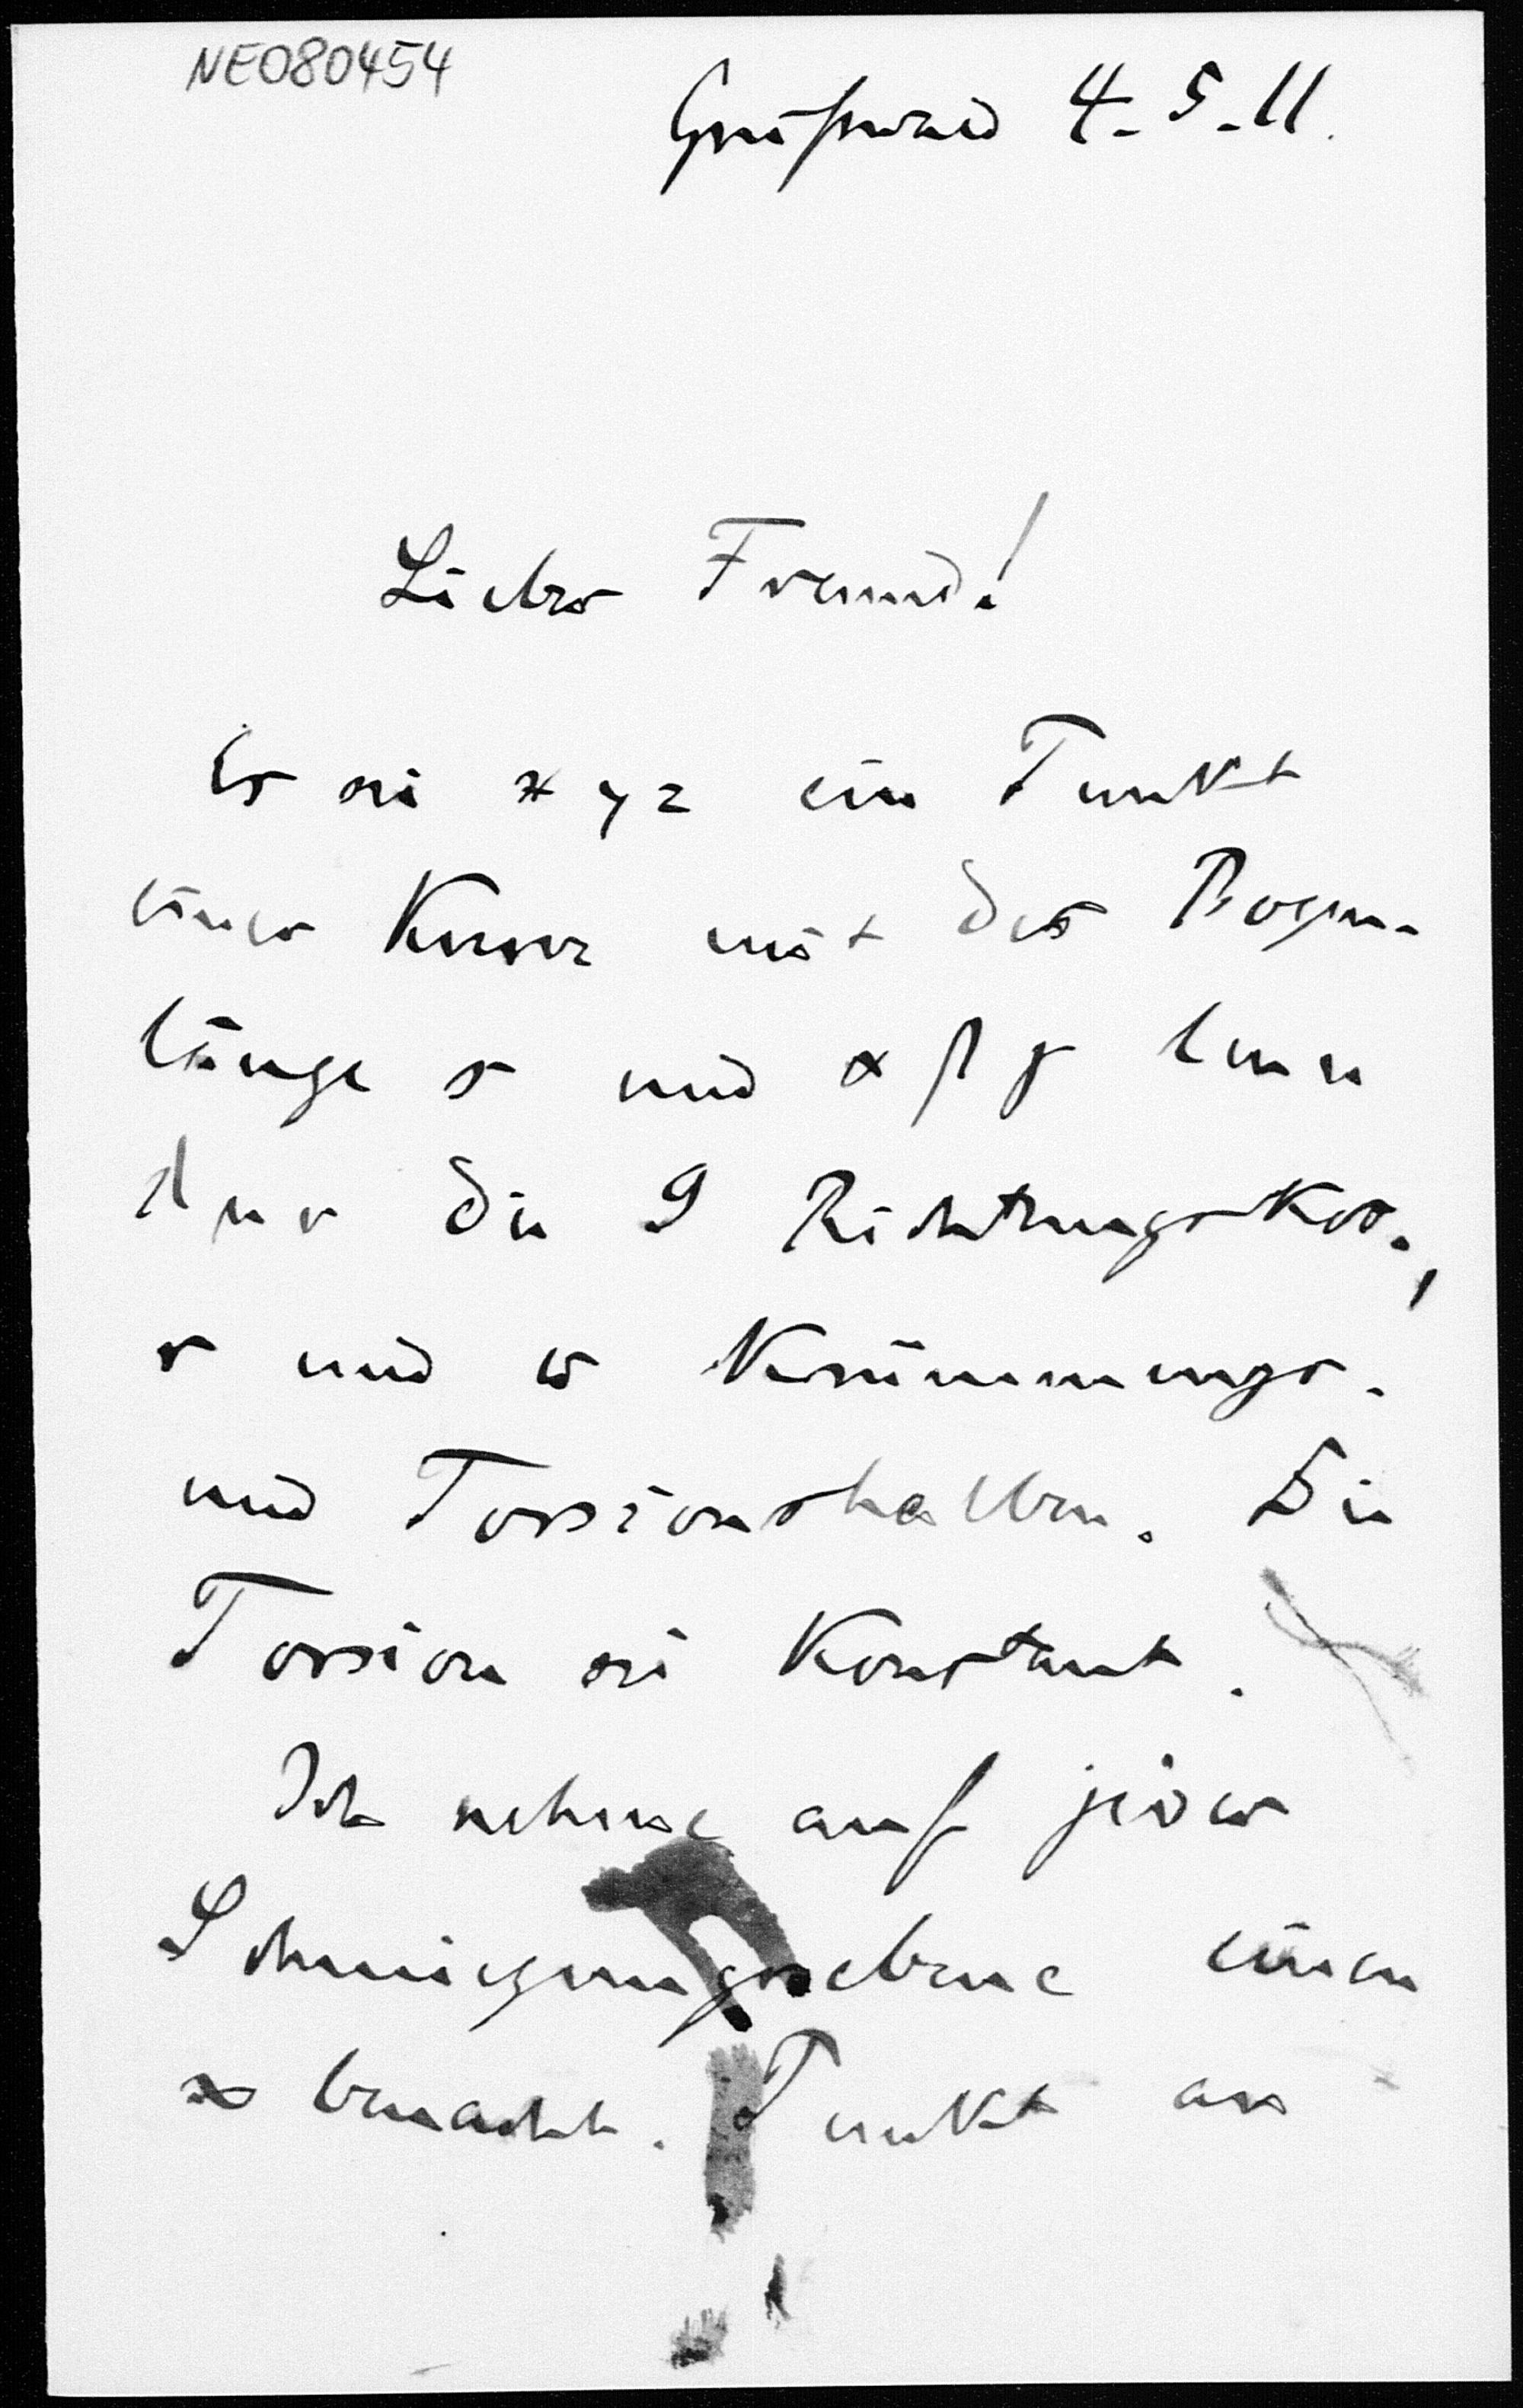 NE080454
Greifswald 4-5-11.
Lieber Freund!
Es sei x y z ein Punkt
einer Kurve mit der Bogen-
länge s und α β γ l m n
λ μ ν die 9 Richtungskos.,
r und ϖ Krümmungs-
und Torsionshalbm. Die
Torsion sei konstant.
Ich nehme auf jeder
Schmiegungsebene einen
∞ benachb. Punkt an